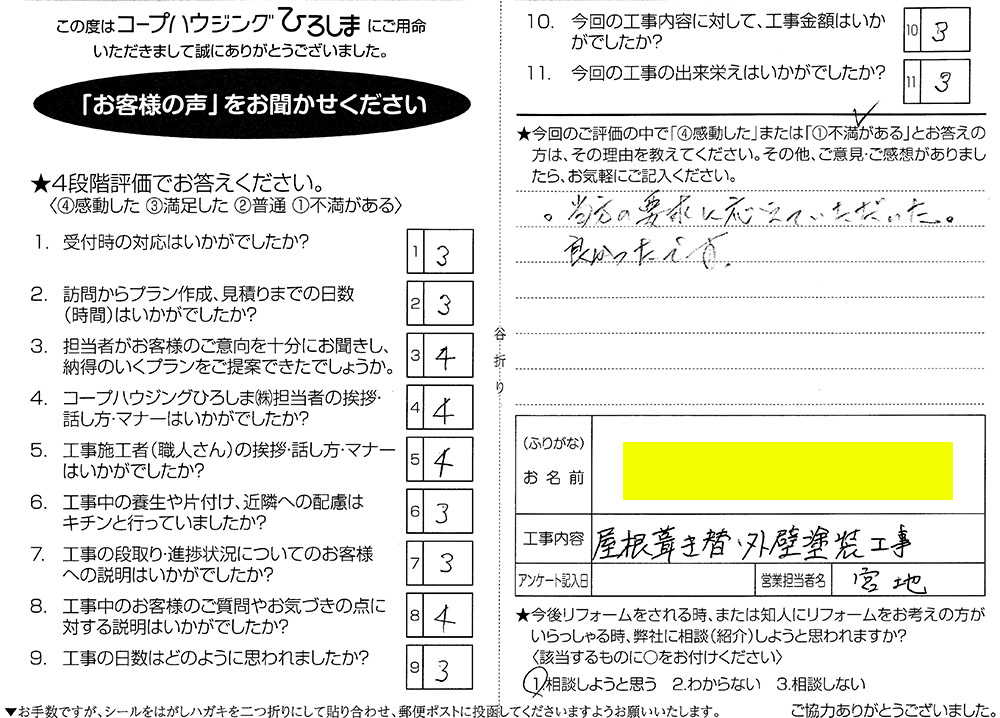 この度はコープハウジングひろしまにご用命
いただきまして誠にありがとうございました。
「お客様の声」をお聞かせください
★4段階評価でお答えください。
〈④感動した ③満足した ②普通 ①不満がある〉
1. 受付時の対応はいかがでしたか?
1 3
2. 訪問からプラン作成、見積りまでの日数
（時間）はいかがでしたか?
2 3
3. 担当者がお客様のご意向を十分にお聞きし、
納得のいくプランをご提案できたでしょうか。
3 4
4. コープハウジングひろしま㈱担当者の挨拶・
話し方・マナーはいかがでしたか?
4 4
5. 工事施工者（職人さん）の挨拶・話し方・マナー
はいかがでしたか?
5 4
6. 工事中の養生や片付け、近隣への配慮は
キチンと行っていましたか?
6 3
7. 工事の段取り・進捗状況についてのお客様
への説明はいかがでしたか?
7 3
8. 工事中のお客様のご質問やお気づきの点に
対する説明はいかがでしたか?
8 4
9. 工事の日数はどのように思われましたか?
9 3
▼お手数ですが、シールをはがしハガキを二つ折りにして貼り合わせ、郵便ポストに投函してくださいますようお願いいたします。
谷折り
10. 今回の工事内容に対して、工事金額はいか
がでしたか?
10 3
11. 今回の工事の出来栄えはいかがでしたか?
11 3
★今回のご評価の中で「④感動した」または「①不満がある」とお答えの
方は、その理由を教えてください。その他、ご意見・ご感想がありまし
たら、お気軽にご記入ください。
。当方の要求に応えていただいた。
良かったです。
（ふりがな）
お名前
工事内容 屋根葺き替・外壁塗装工事
アンケート記入日 営業担当者名 宮地
★今後リフォームをされる時、または知人にリフォームをお考えの方が
いらっしゃる時、弊社に相談（紹介）しようと思われますか?
〈該当するものに○をお付けください〉
1.相談しようと思う 2.わからない 3.相談しない
ご協力ありがとうございました。